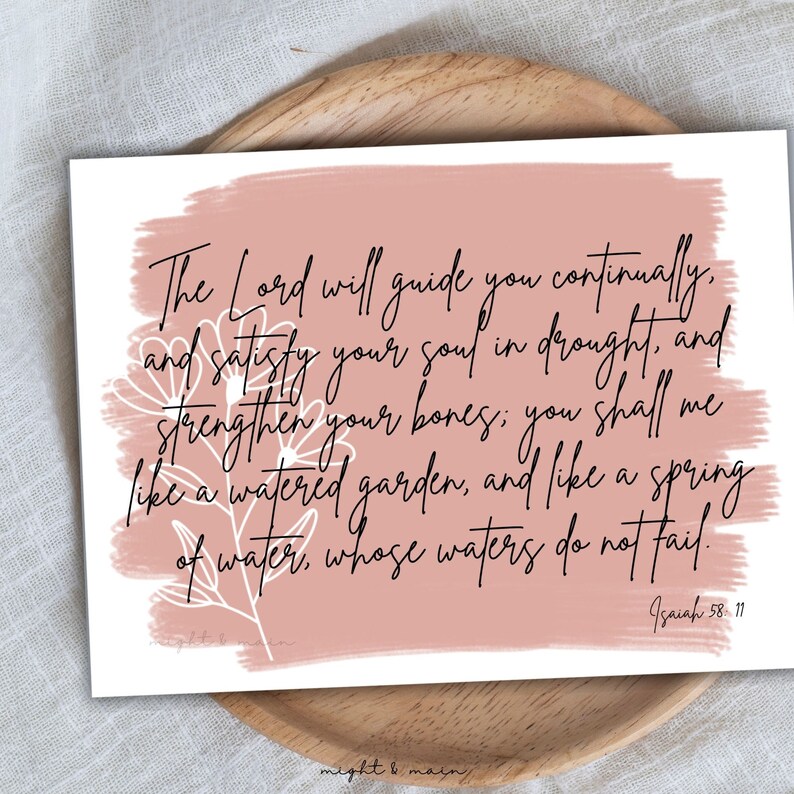 The Lord will guide you continually,
and satisfy your soul in drought, and
strengthen your bones; you shall me
like a watered garden, and like a spring
of water, whose waters do not fail.
Isaiah 58: 11
might & main
might & main